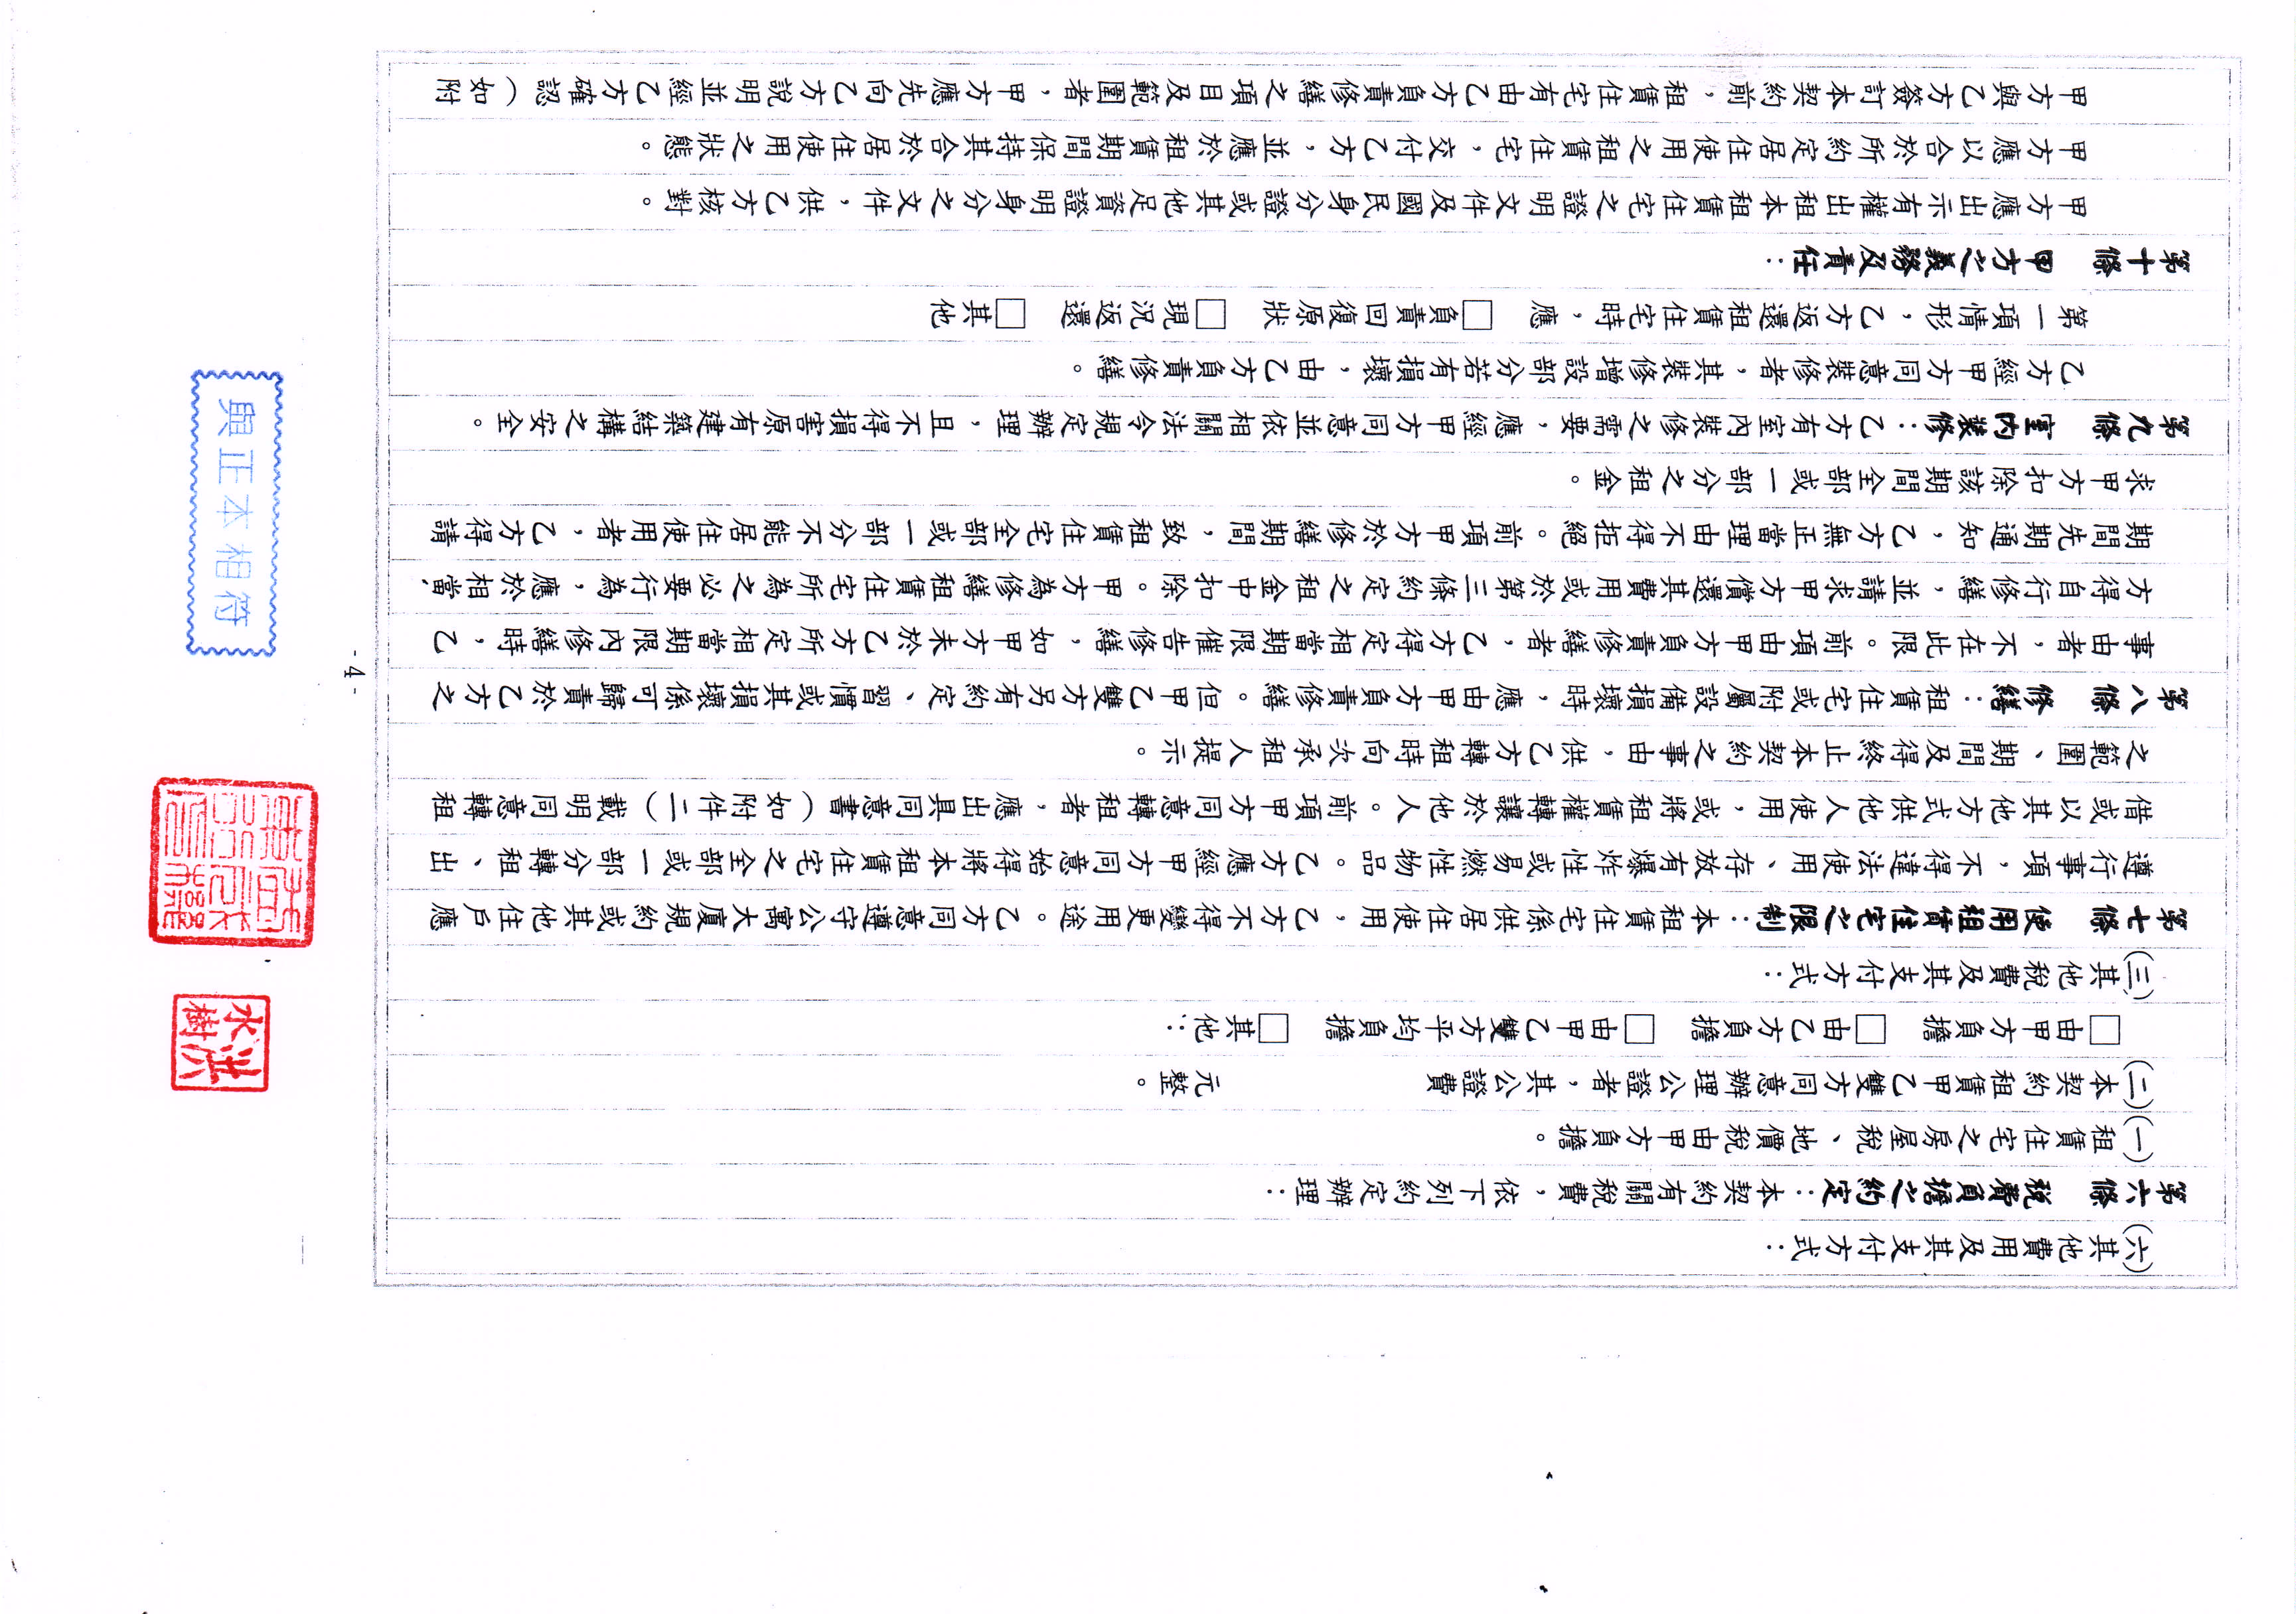 (六)其他費用及其支付方式：
第六條　稅費負擔之約定：本契約有關稅費，依下列約定辦理：
(一)租賃住宅之房屋稅、地價稅由甲方負擔。
(二)本契約租賃甲乙雙方同意辦理公證者，其公證費　　　　　　元整。
□由甲方負擔　□由乙方負擔　□由甲乙雙方平均負擔　□其他：
(三)其他稅費及其支付方式：
第七條　使用租賃住宅之限制：本租賃住宅係供居住使用，乙方不得變更用途。乙方同意遵守公寓大廈規約或其他住戶應
遵行事項，不得違法使用、存放有爆炸性或易燃性物品。乙方應經甲方同意始得將本租賃住宅之全部或一部分轉租、出
借或以其他方式供他人使用，或將租賃權轉讓於他人。前項甲方同意轉租者，應出具同意書（如附件二）載明同意轉租
之範圍、期間及得終止本契約之事由，供乙方轉租時向次承租人提示。
第八條　修繕：租賃住宅或附屬設備損壞時，應由甲方負責修繕。但甲乙雙方另有約定、習慣或其損壞係可歸責於乙方之
事由者，不在此限。前項由甲方負責修繕者，乙方得定相當期限催告修繕，如甲方未於乙方所定相當期限內修繕時，乙
方得自行修繕，並請求甲方償還其費用或於第三條約定之租金中扣除。甲方為修繕租賃住宅所為之必要行為，應於相當
期間先期通知，乙方無正當理由不得拒絕。前項甲方於修繕期間，致租賃住宅全部或一部分不能居住使用者，乙方得請
求甲方扣除該期間全部或一部分之租金。
第九條　室內裝修：乙方有室內裝修之需要，應經甲方同意並依相關法令規定辦理，且不得損害原有建築結構之安全。
乙方經甲方同意裝修者，其裝修增設部分若有損壞，由乙方負責修繕。
第一項情形，乙方返還租賃住宅時，應　□負責回復原狀　□現況返還　□其他
第十條　甲方之義務及責任：
甲方應出示有權出租本租賃住宅之證明文件及國民身分證或其他足資證明身分之文件，供乙方核對。
甲方應以合於所約定居住使用之租賃住宅，交付乙方，並應於租賃期間保持其合於居住使用之狀態。
甲方與乙方簽訂本契約前，租賃住宅有由乙方負責修繕之項目及範圍者，甲方應先向乙方說明並經乙方確認（如附
- 4 -
與正本相符
洪水樹